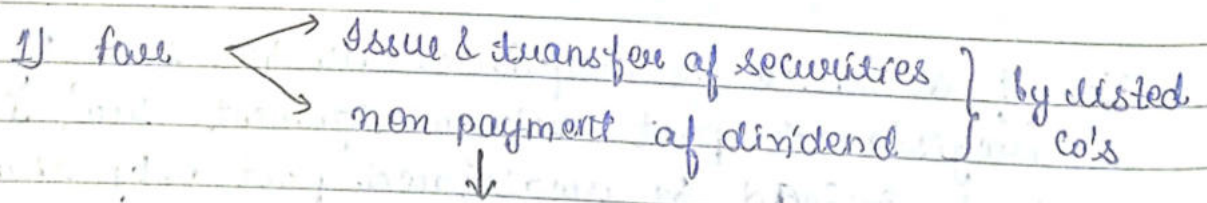 1) for Issue & transfer of securities
non payment of dividend
by listed
co's